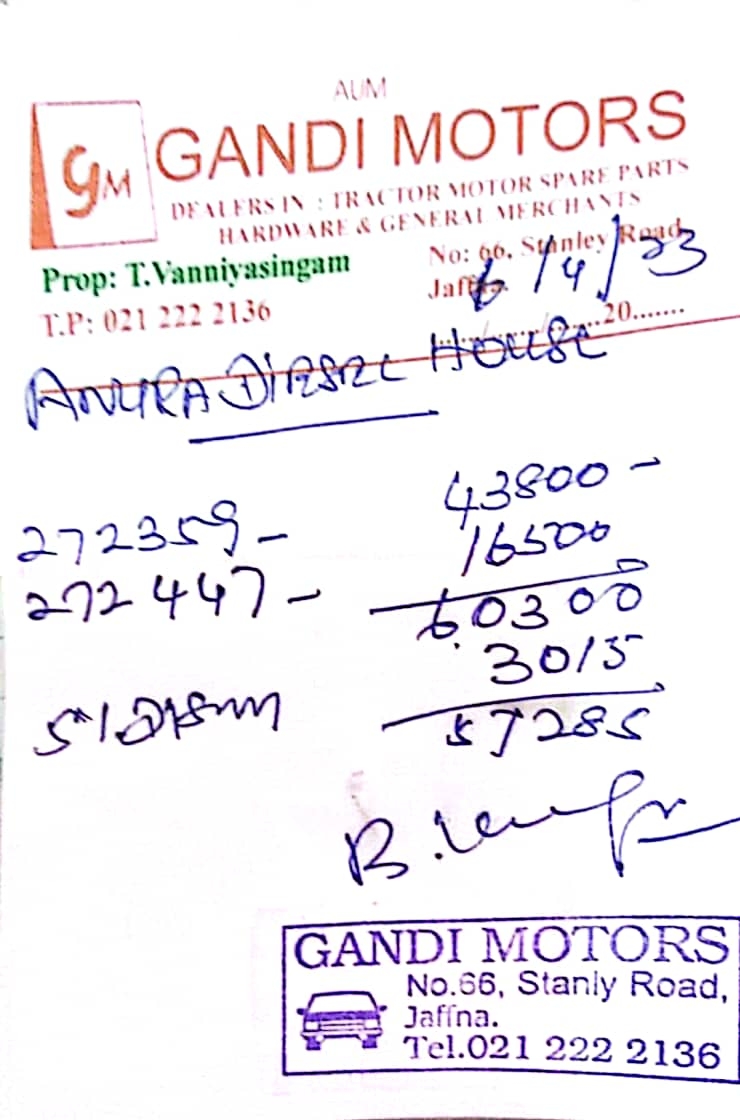 AUM
GM
GANDI MOTORS
DEALERS IN : TRACTOR MOTOR SPARE PARTS
HARDWARE & GENERAL MERCHANTS
Prop: T.Vanniyasingam
No: 66, Stanley Road,
Jaffna.
T.P: 021 222 2136
6/4/23
....../....../......20.......
ANURA DIESEL HOUSE
43800 -
272359 -
16500
272447 -
60300
3015
57285
GANDI MOTORS
No.66, Stanly Road,
Jaffna.
Tel.021 222 2136